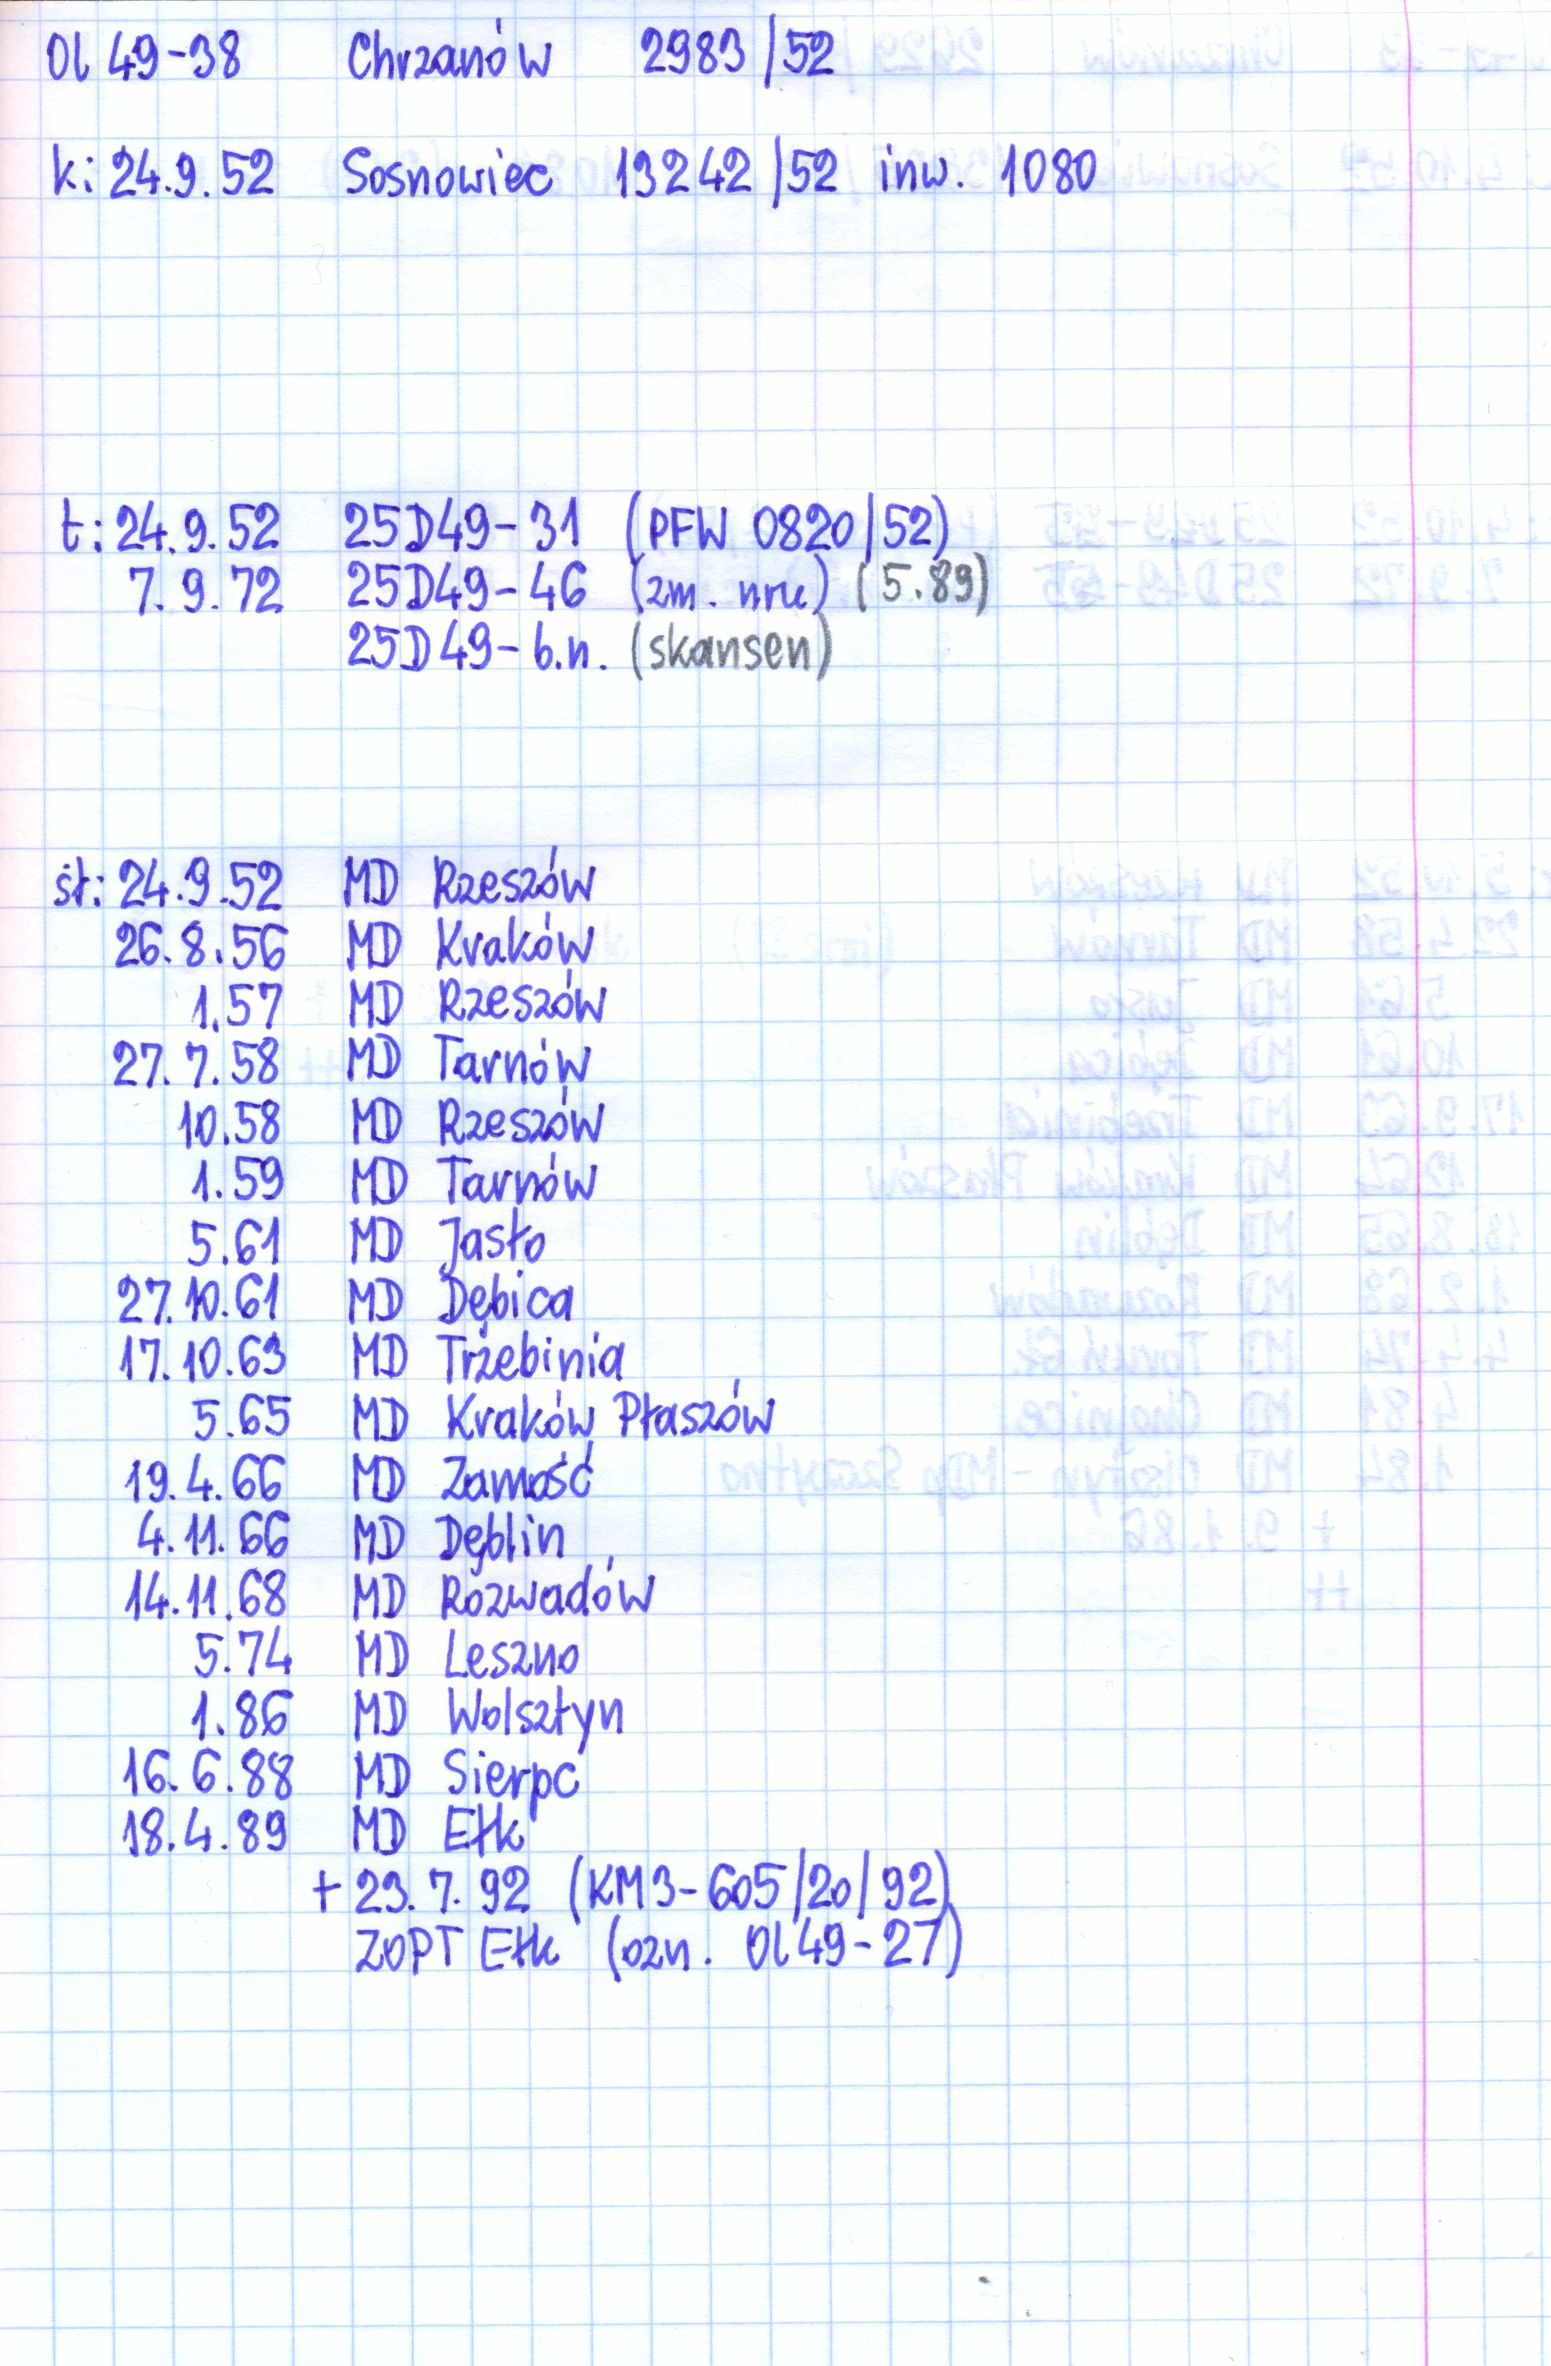 Ol 49-38 Chrzanów 2983/52
k: 24.9.52 Sosnowiec 13242/52 inw. 1080
t: 24.9.52 25D49-31 (PFW 0820/52)
7.9.72 25D49-46 (zm. nru) (5.89)
25D49-b.n. (skansen)
st: 24.9.52 MD Rzeszów
26.8.56 MD Kraków
1.57 MD Rzeszów
27.7.58 MD Tarnów
10.58 MD Rzeszów
1.59 MD Tarnów
5.61 MD Jasło
27.10.61 MD Dębica
17.10.63 MD Trzebinia
5.65 MD Kraków Płaszów
19.4.66 MD Zamość
4.11.66 MD Dęblin
14.11.68 MD Rozwadów
5.74 MD Leszno
1.86 MD Wolsztyn
16.6.88 MD Sierpc
18.4.89 MD Ełk
+ 23.7.92 (KM3-605/20/92)
ZOPT Ełk (ozn. Ol49-27)